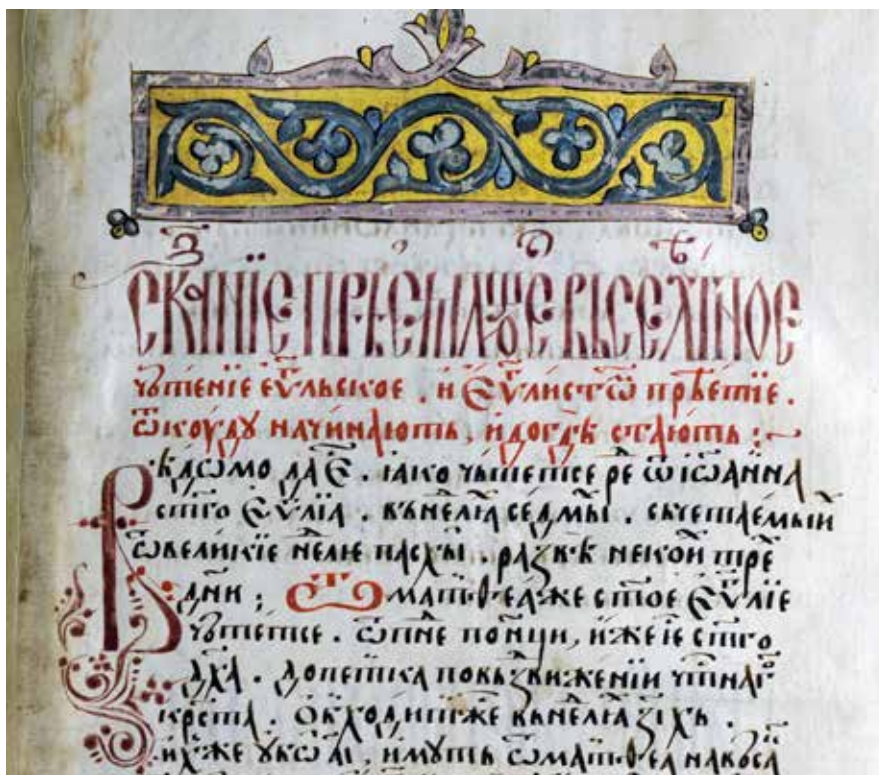 Сказанїе прѣемлющее въсе лѣтное
чьтенїе еѵⷢ҇льское . и Еѵⷢ҇листѡⷨ прѣетїе .
ѿкоудꙋ начинають , и догдѣ стають :~
Вѣдомо да е҇ . ꙗко чьтетсе рⷣе ѿ іѡанна
ст҃го Еѵⷢ҇лїа . въ нелїа седмы . съчетаемый
ѿ великїе нелїе пасхы . развѣ некои трⷯе
дн҃и ; Ѿ матѳеа же ст҃ое Еѵⷢ҇лїе
чьтетсе . ѿ пнⷣе понци , иже іе ст҃го
дх҃а . до петка по въздвиженїи чⷭ҇тнаⷢ
крⷭ҇та . Обходит же въ нелїа з҃і хь .
ихже имуть ѿ матѳеа